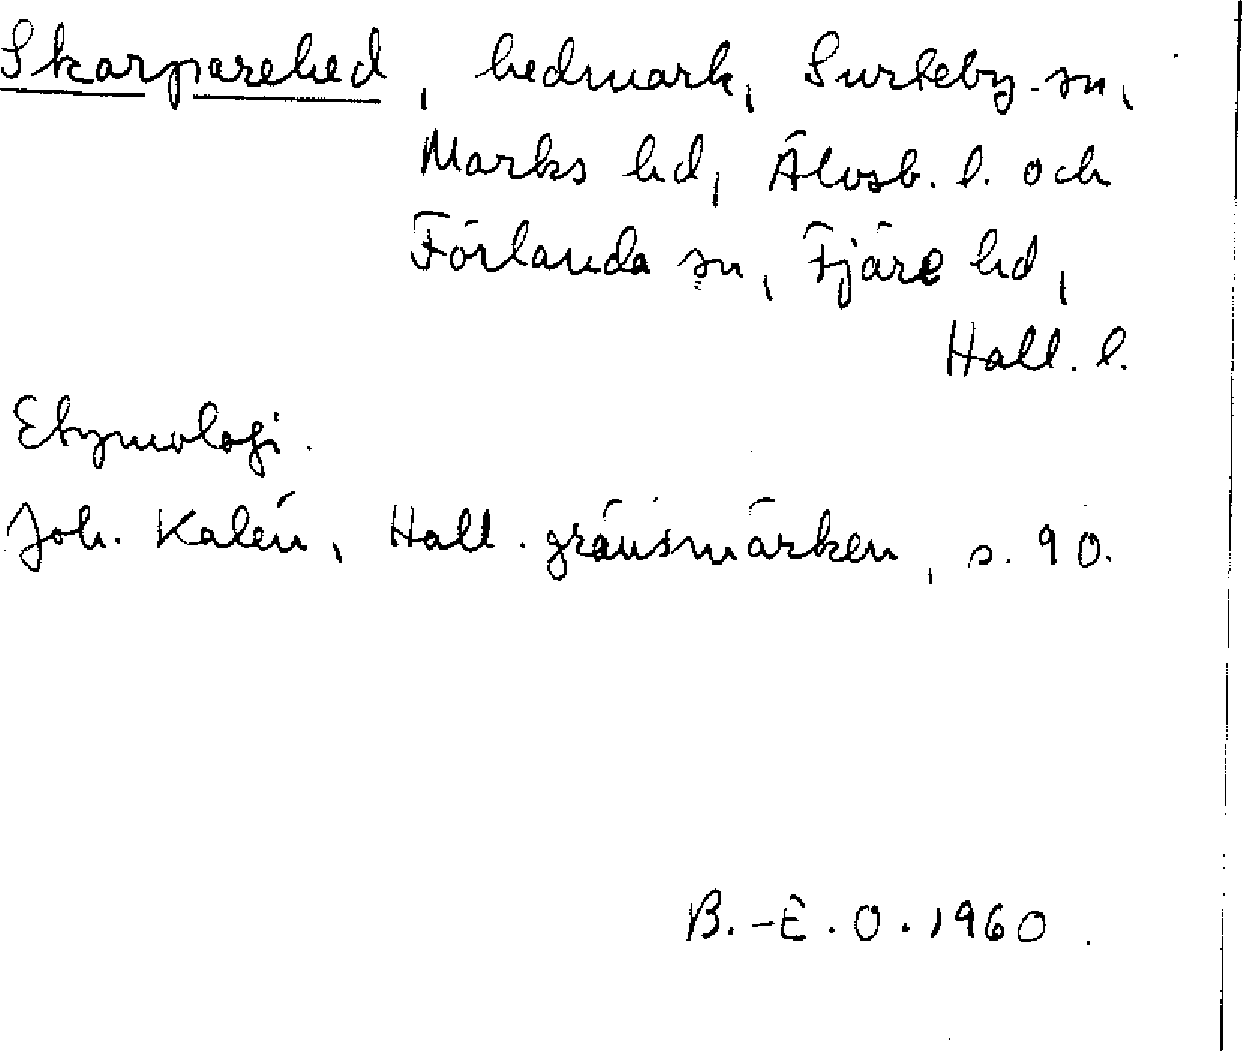 Skarparehed, hedmark, Surteby sn,
Marks hd, Älvsb. l. och
Förlanda sn, Fjäre hd,
Hall. l.
Etymologi.
Joh. Kalén, Hall. gränsmärken, s. 90.
B.-E. O. 1960.